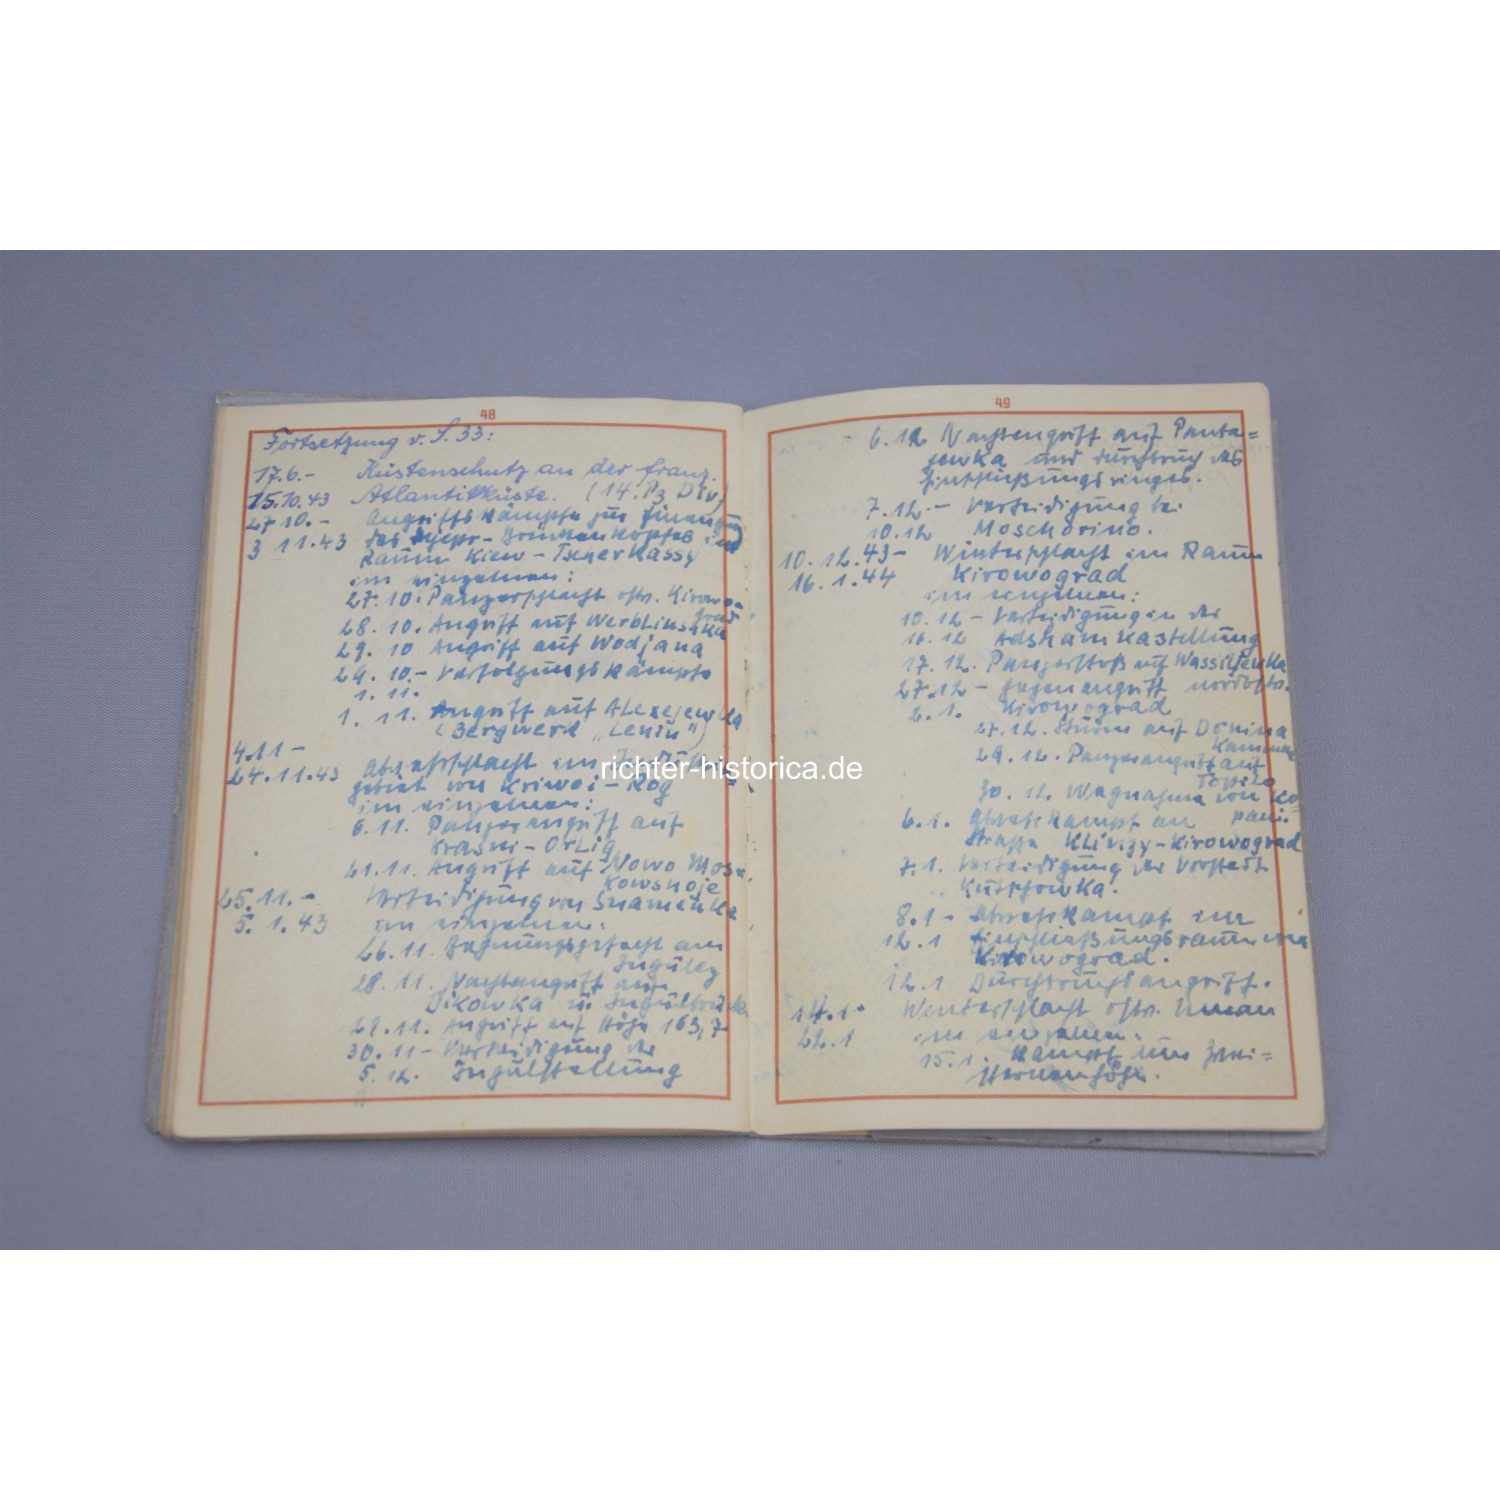 48
Fortsetzung v. S. 33:
17.6.- Küstenschutz an der franz.
15.10.43 Atlantikküste. (14. Pz Div)
27 10.- Angriffskämpfe zur
3 11.43 des Dnjepr-Brückenkopfes im
Raum Kiew-Tscherkassy
im einzelnen:
27.10. Panzerschlacht ostw. Kirowo-
grad
28. 10. Angriff auf Werbliushka
29. 10 Angriff auf Wodjana
29. 10.- Verfolgungskämpfe
1. 11.
1. 11. Angriff auf Alexejewka
(Bergwerk „Lenin")
4.11-
24.11.43 Abwehrschlacht im
gebiet von Kriwoi-Rog
im einzelnen:
6.11. Panzerangriff auf
Krasni-Orlig
21.11. Angriff auf Nowo Mos-
kowskoje
25.11.- Verteidigung von Snamenka
5. 1.43 im einzelnen:
26.11. Begnungsgefecht am
Ingulez
28. 11. Nachtangriff auf
Dikowka u. Ingulbrücke
29.11. Angriff auf Höhe 163,7
30. 11- Verteidigung der
5. 12. Ingulstellung
49
6.12 Nachtangriff auf Panta=
jewka und Durchbruch des
Einschließungsringes.
7.12.- Verteidigung bei
10.12 Moschorino.
10.12.43- Winterschlacht im Raum
16.1.44 Kirowograd
im einzelnen:
10.12- Verteidigung in der
16.12 Adshamkastellung
17. 12. Panzerstoß auf Wassiljewka
27.12- Gegenangriff nordostw.
2.1. Kirowograd
27.12. Sturm auf Donina
Kamenka
29. 12. Panzerangriff auf
Topilo
30. 12. Wegnahme von Ko=
pani.
6.1. Abwehrkampf an
Straße Klinzy-Kirowograd
7.1. Verteidigung der Vorstadt
Kutschowka.
8.1- Abwehrkampf im
12.1 Einschließungsraum
Kirowograd.
12.1 Durchbruchsangriff.
17.1- Winterschlacht ostw. Uman
22.1 im einzelnen:
15.1. Kampf um
richter-historica.de